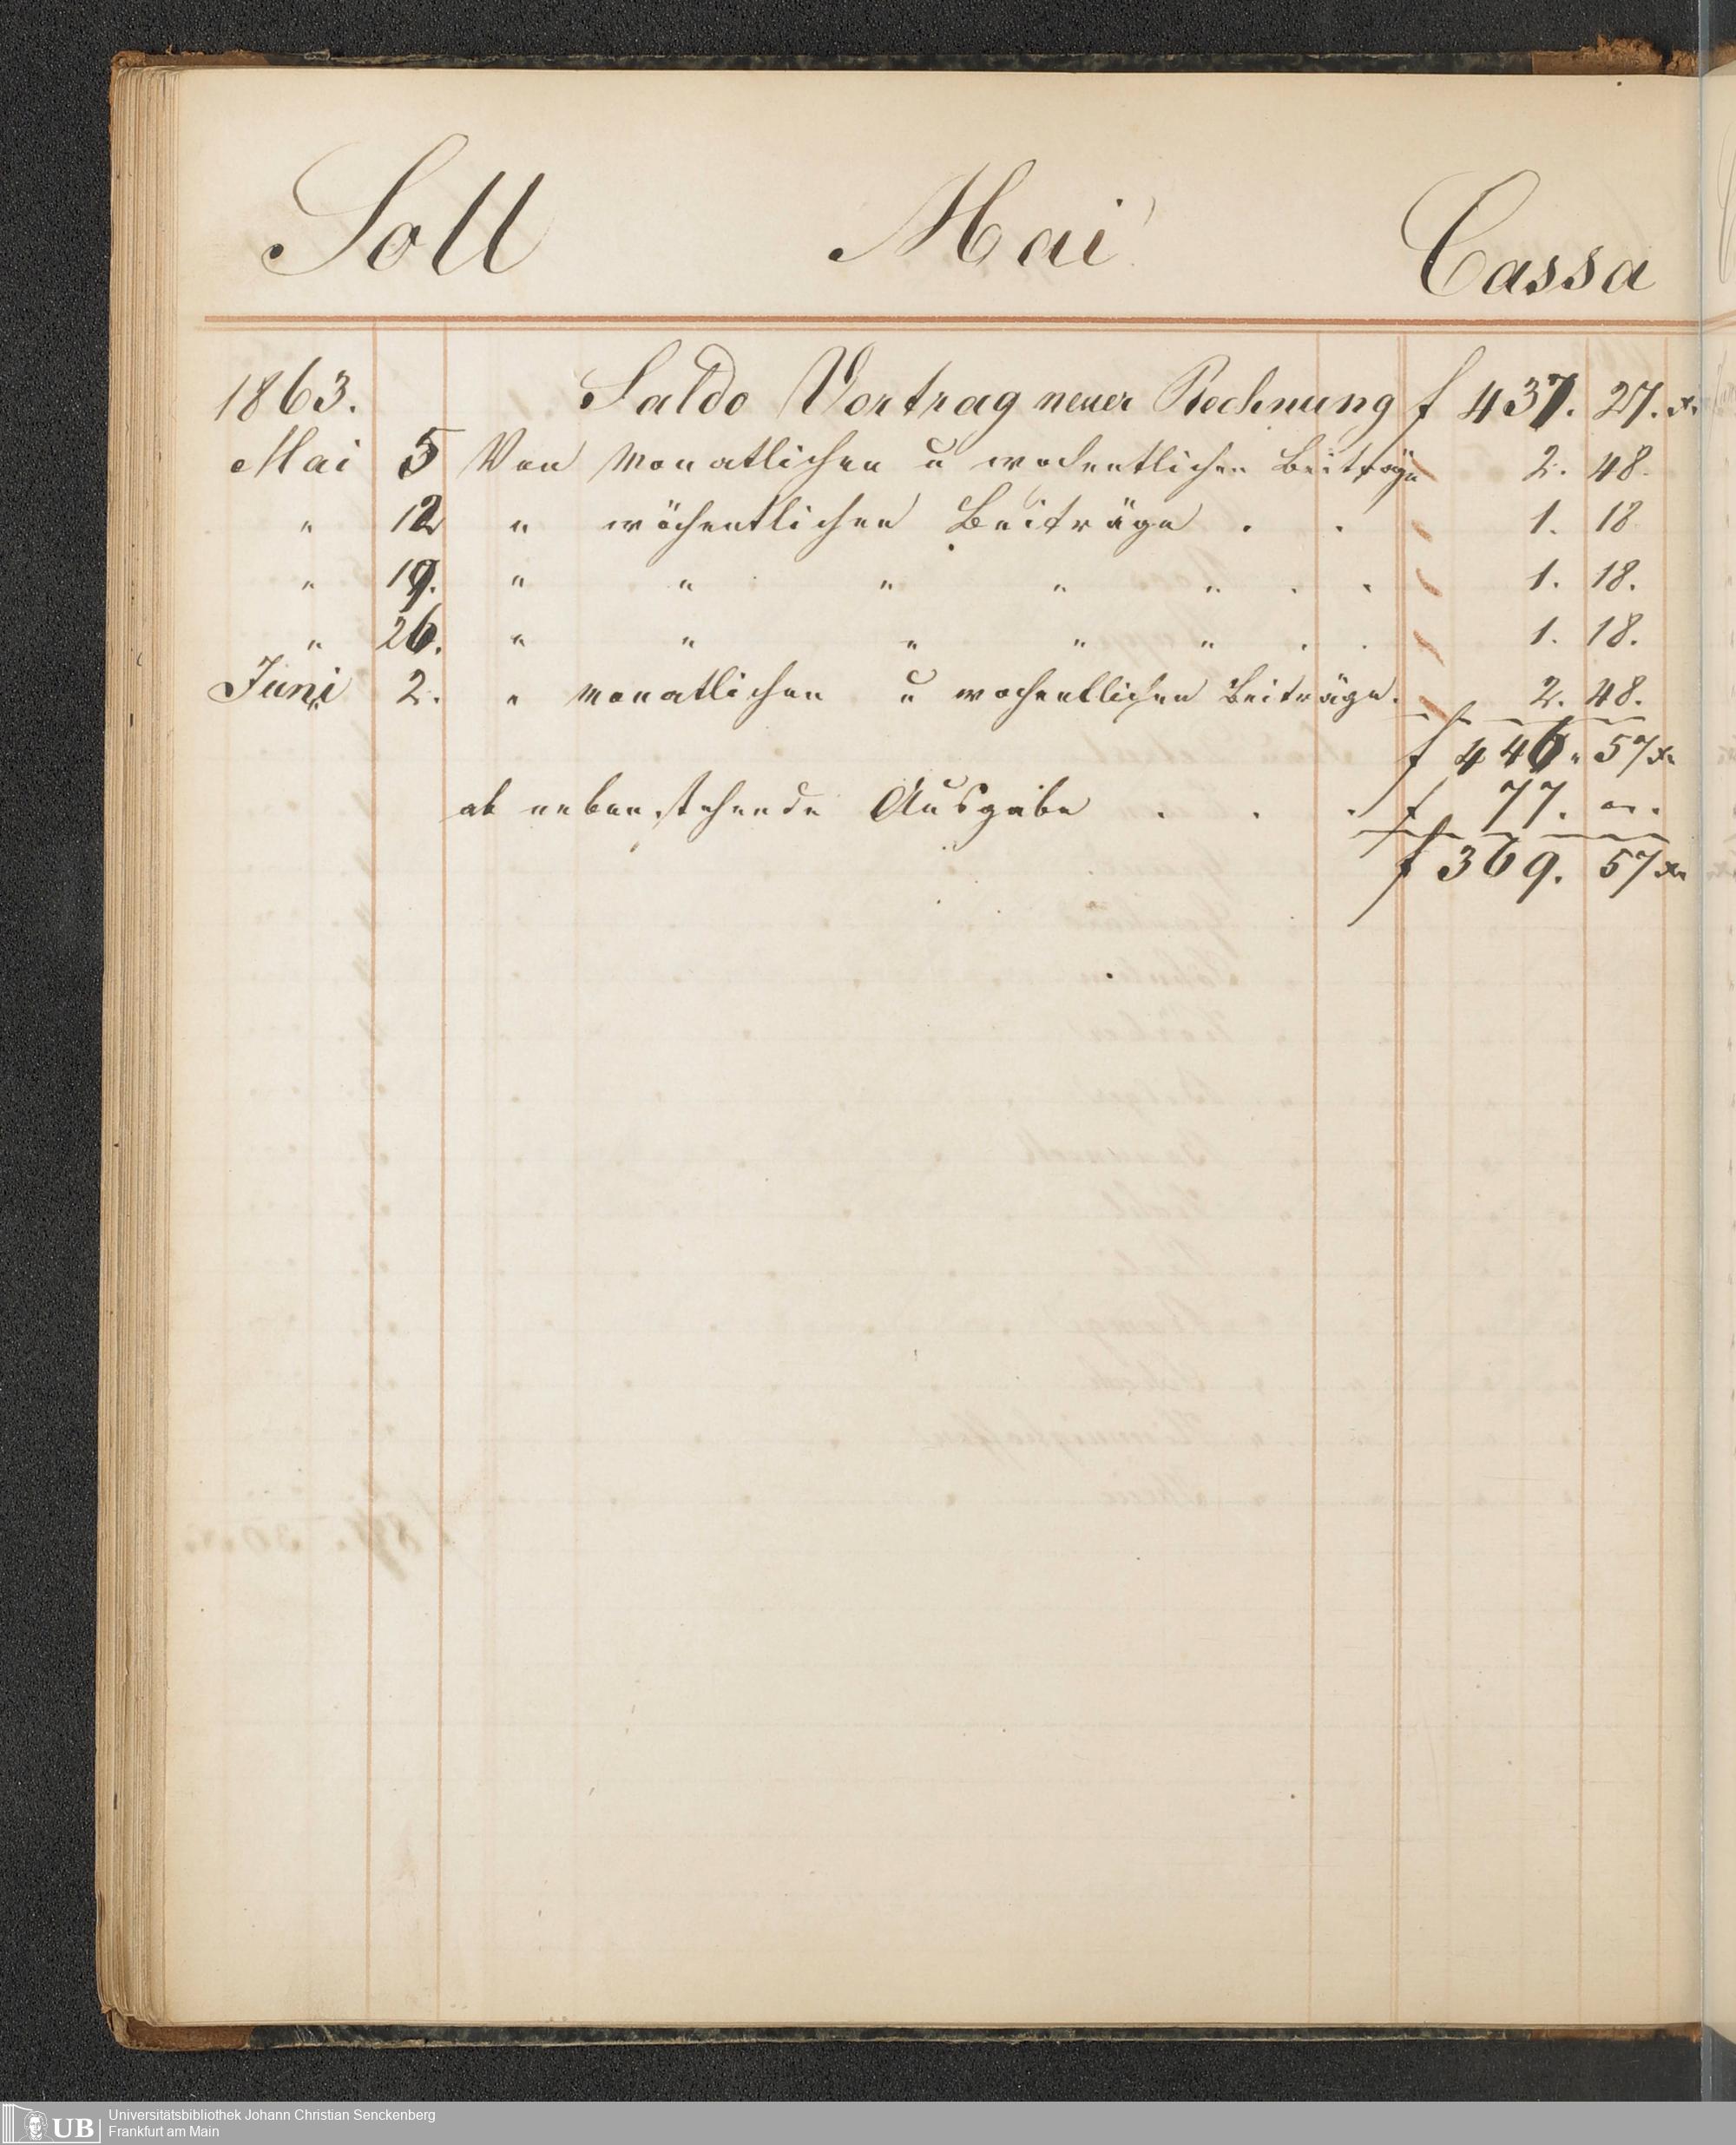 Soll Mai Cassa
1863. Saldo Vortrag neuer Rechnung f 437. 27. xr
Mai 5 Von monatlichen u wochentlichen Beiträge 2. 48.
" 12 " wöchentlichen Beiträge . . 1. 18
" 19. " " " " " . . 1. 18.
" 26. " " " " " . . 1. 18.
Juni 2. " monatlichen u wochentlichen Beiträge. 2. 48.
f 446. 57 xr
ab nebenstehende Ausgabe . . . f 77. —.
f 369. 57 xr
UB Universitätsbibliothek Johann Christian Senckenberg
Frankfurt am Main